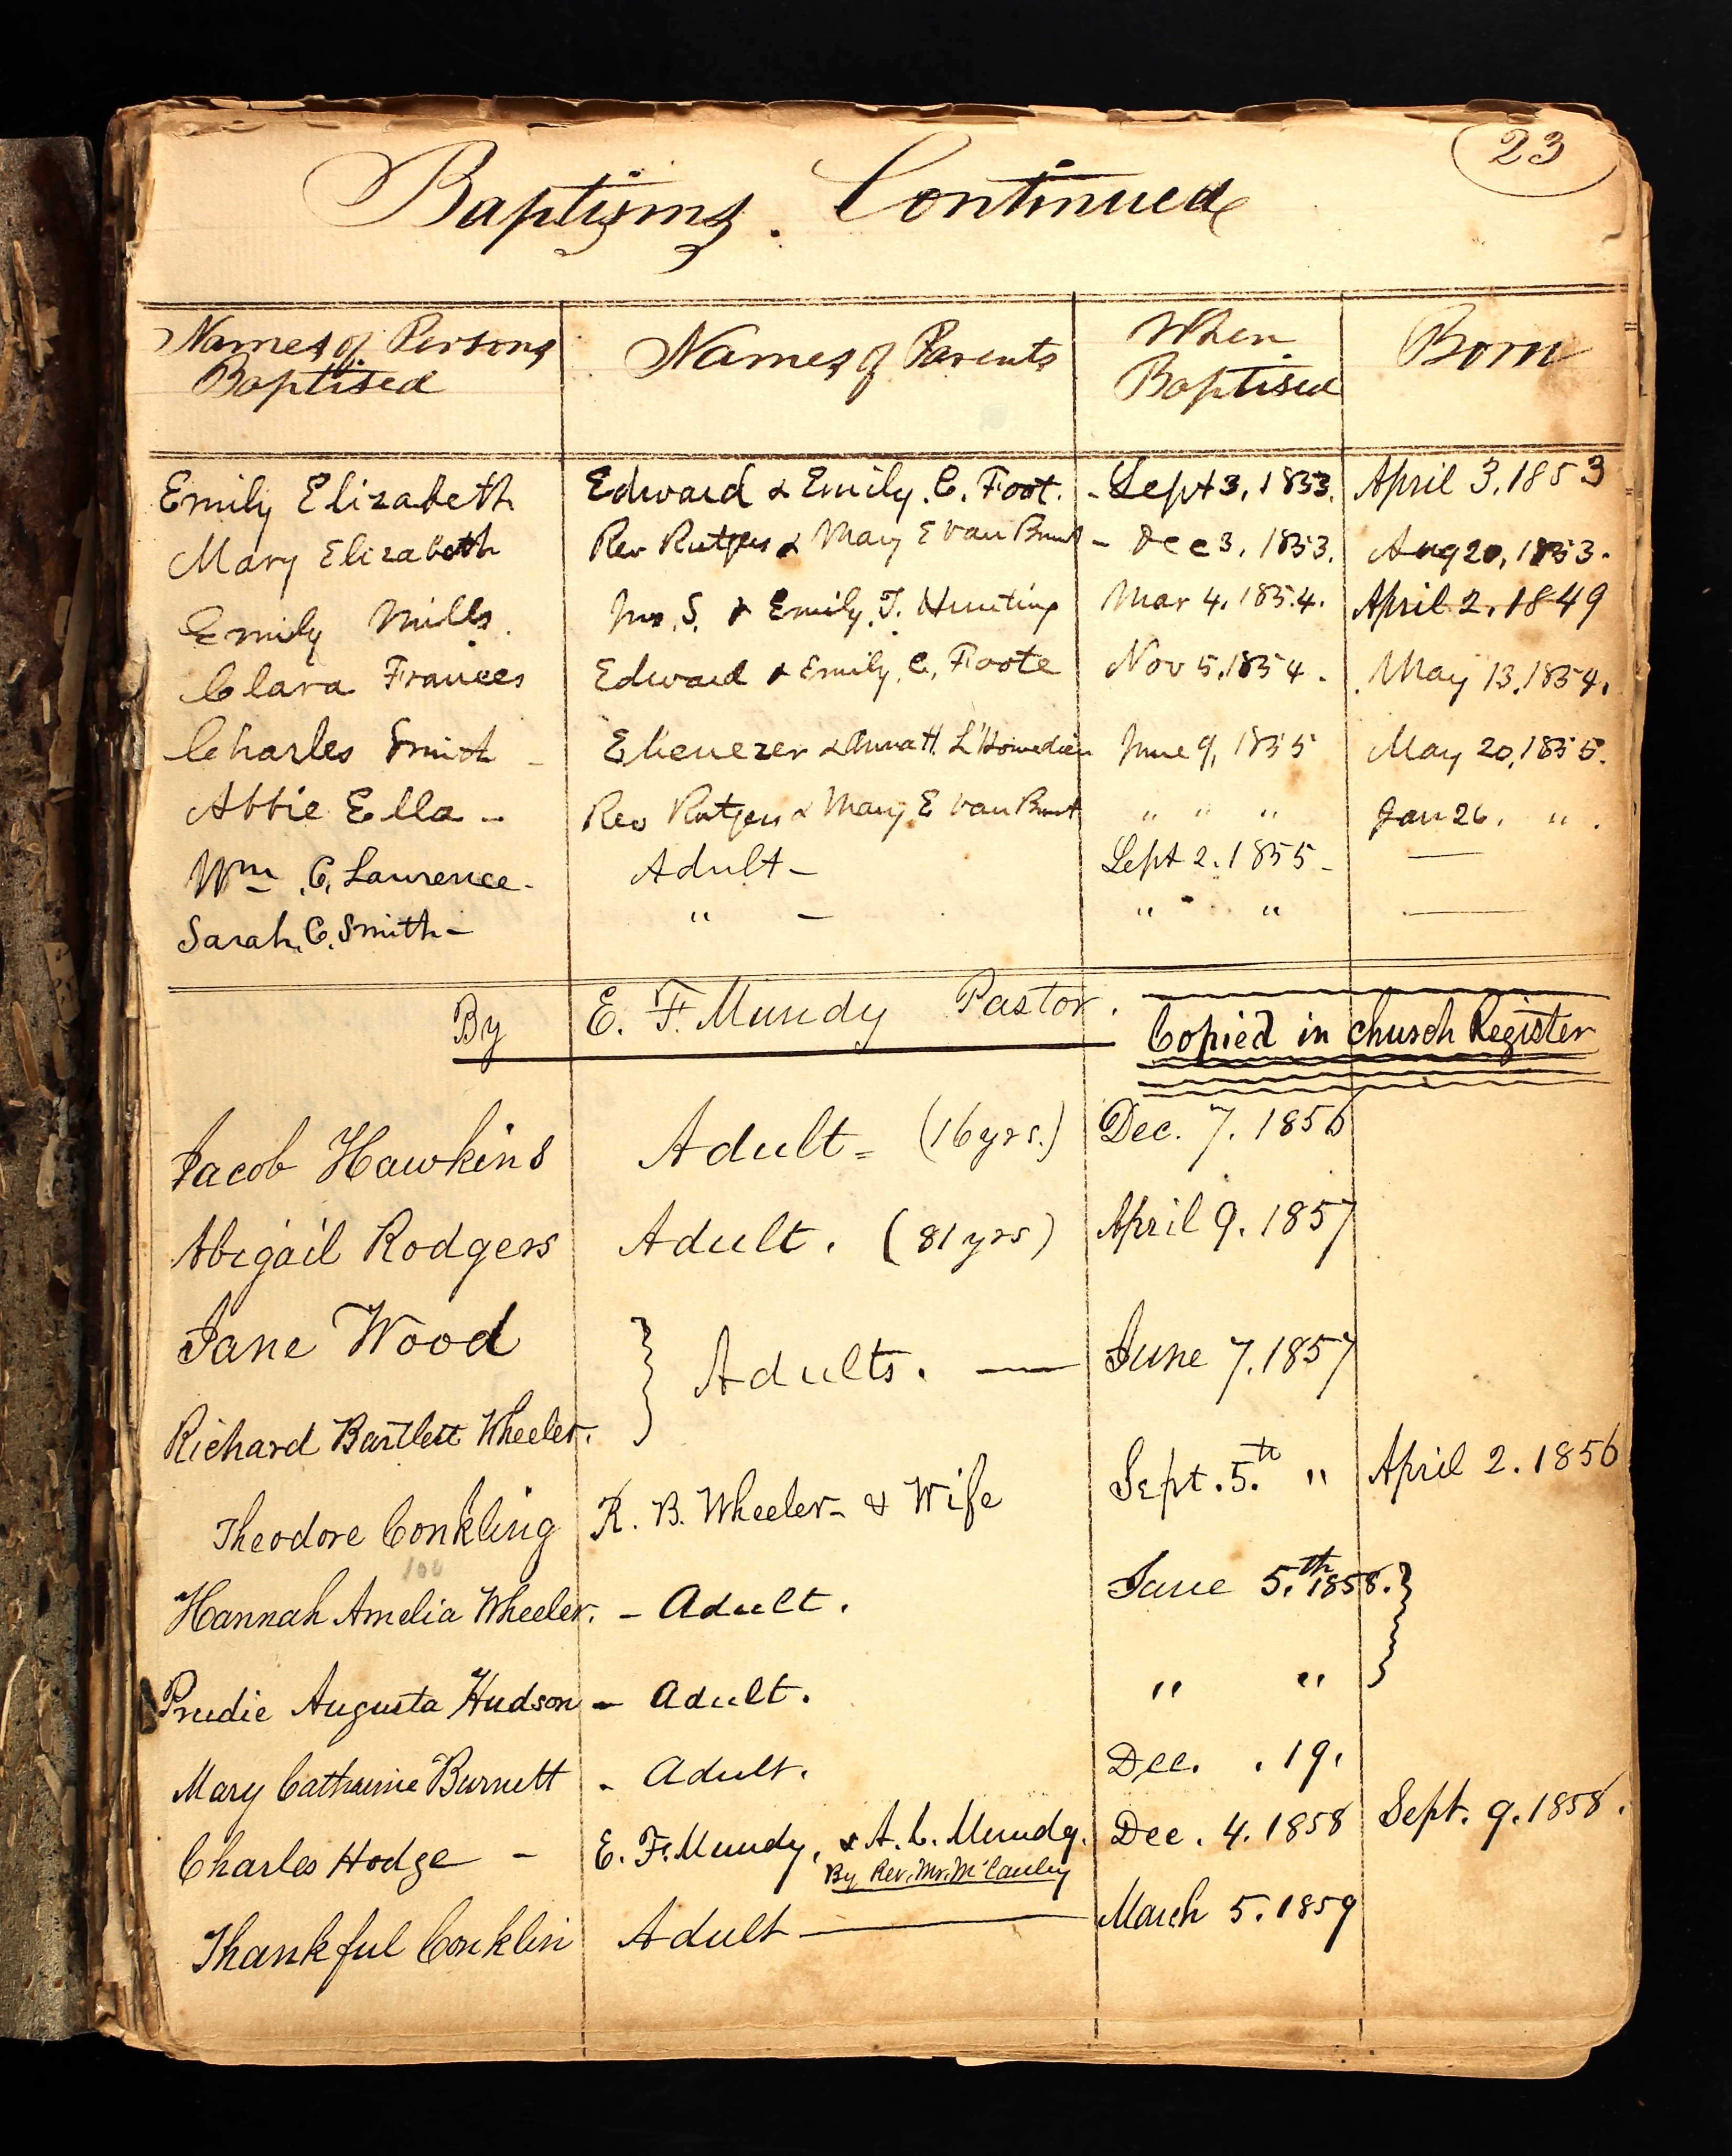 23
Baptisms. Continued
Names of Persons Baptised | Names of Parents | When Baptised | Born
Emily Elizabeth | Edward & Emily. C. Foot. | - Sept 3, 1853. | April 3, 1853
Mary Elizabeth | Rev Rutgers & Mary E Van Brunt | - Dec 3, 1853. | Aug 20, 1853.
Emily Mills. | Jno. S. & Emily. T. Hunting | Mar 4. 1854. | April 2, 1849
Clara Frances | Edward & Emily. C. Foote | Nov 5, 1854. | May 13, 1854.
Charles Smith - | Ebenezer & Anna H. L'Homedieu | June 9, 1855 | May 20, 1855.
Abbie Ella - | Rev Rutgers & Mary E Van Brunt | " " " | Jan 26. " .
Wm C. Lawrence - | Adult - | Sept 2. 1855 - | —
Sarah. C. Smith - | " - | " " | —
By E. F. Mundy Pastor.
Copied in Church Register
Jacob Hawkins | Adult = (16 yrs.) | Dec. 7. 1856
Abigail Rodgers | Adult. (81 yrs) | April 9. 1857
Jane Wood | } Adults. — | June 7. 1857
Richard Bartlett Wheeler.
Theodore Conkling | R. B. Wheeler - & Wife | Sept. 5.th " | April 2. 1856
Hannah Amelia Wheeler. | - Adult. | June 5.th 1858. }
Prudie Augusta Hudson | - Adult. | " "
Mary Catharine Burnett | - Adult. | Dec. . 19.
Charles Hodge - | E. F. Mundy, & A. C. Mundy. | Dec. 4. 1858 | Sept. 9. 1858.
By Rev. Mr. McCauley
Thankful Conklin | Adult — | March 5. 1859